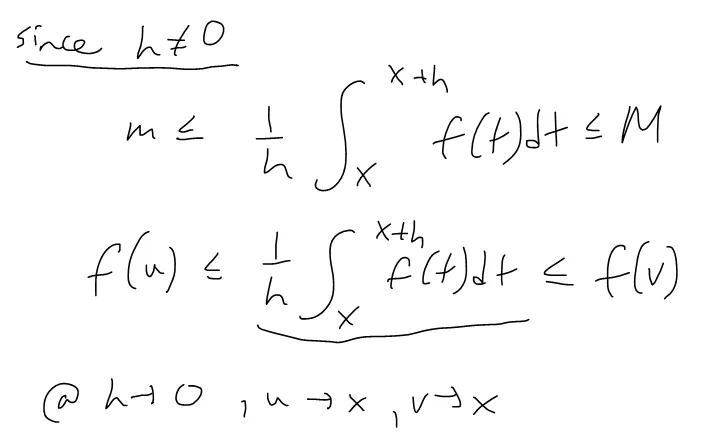 since h ≠ 0
m ≤ 1/h ∫_x^{x+h} f(t)dt ≤ M
f(u) ≤ 1/h ∫_x^{x+h} f(t)dt ≤ f(v)
@ h → 0 , u → x , v → x